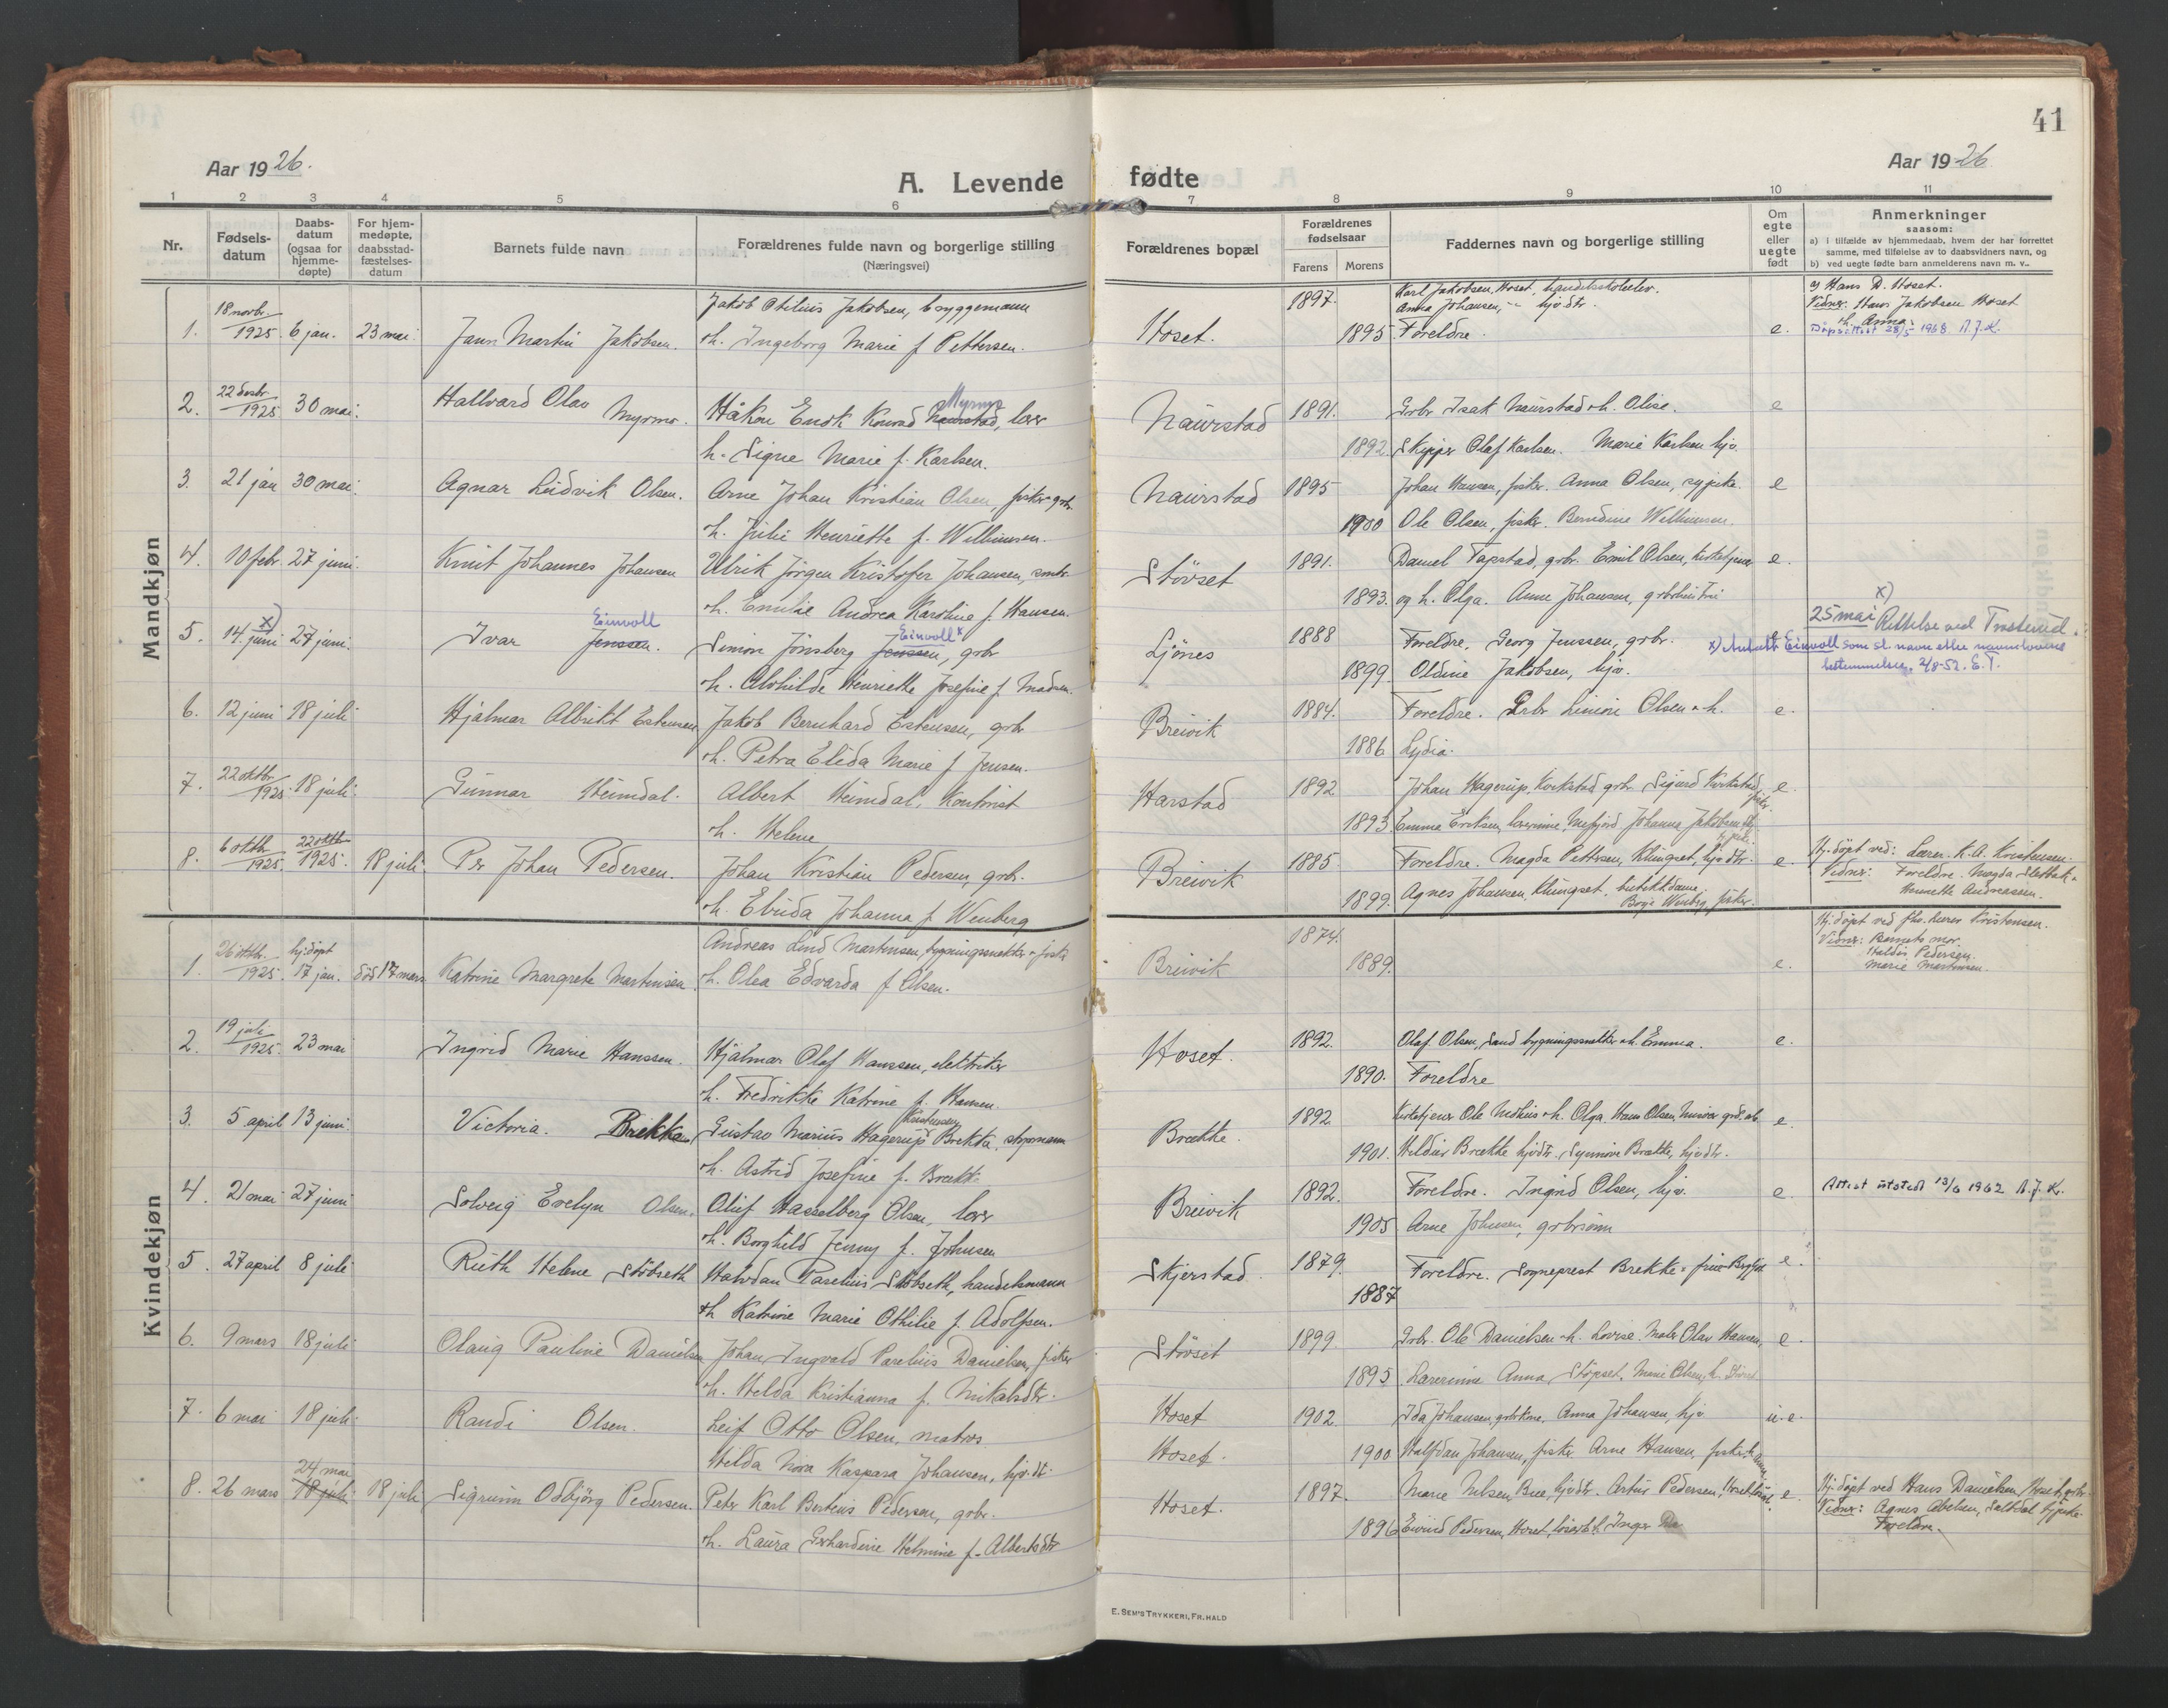 41
Aar 1926.
A. Levende fødte
Aar 1926
1 2 3 4 5 6 7 8 9 10 11
Nr.
Fødsels-
datum
Daabs-
datum
(ogsaa for
hjemme-
døpte)
For hjem-
medøpte,
daabsstad-
fæstelses-
datum
Barnets fulde navn
Forældrenes fulde navn og borgerlige stilling
(Næringsvei)
Forældrenes bopæl
Forældrenes
fødselsaar
Farens Morens
Faddernes navn og borgerlige stilling
Om
egte
eller
uegte
født
Anmerkninger
saasom:
a) i tilfælde av hjemmedaab, hvem der har forrettet
samme, med tilføielse av to daabsvidners navn, og
b) ved uegte fødte barn anmelderens navn m. v..
Mandkjøn
1. 18 novbr. 1925. 6 jan. 23 mai. Martin Jakobsen.
Jakob Otelius Jakobsen, bryggemann
h. Ingeborg Marie f Pettersen.
Hoset. 1897. 1895
Karl Jakobsen, Hoset,
Anna Johansen, hjv dtr.
Foreldre. e.
Hans D. Hoset.
Vidner: Hans Jakobsen Hoset
h. Anna.
28/5 1968 A.J.K.
2. 22 1925 30 mai. Hallvard Olav Myrmo.
Håkon Endk Konrad Naurstad, lærer
h. Signe Marie f. Karlsen.
Naurstad 1891. 1892
Grbr Isak Naurstad h. Olise. e
Skipper Olaf Karlsen. Marie Karlsen hjv.
3. 21 jan 30 mai. Agnar Ludvik Olsen.
Arne Johan Kristian Olsen, fisker grbr.
h. Julie Henriette f.
Naurstad 1895 1900
Johan Hansen, fisker. Anna Olsen, sypike. e
Ole Olsen, fisker. Berndine
4. 10 febr. 27 juni. Knut Johannes Johansen
Ulrik Jørgen Kristofer Johansen, smbr.
h. Emilie Andrea Karoline f. Hansen.
Støvset 1891. 1893.
Daniel Tapstad, grbr. Emil Olsen, kirketjener e.
og h. Olga. Anne Johansen,
5. 14 juni x) 27 juni. Ivar Jenssen. Einvoll
Simon Jønsberg Jenssen, grbr Einvoll x
h. Alvhilde Henriette Josefine f. Madsen.
Ljönes 1888 1899.
Foreldre. Georg Jenssen, grbr.
Oldine Jakobsen, hjv.
x) 25 mai Rettelse ved
x) Antatt Einvoll som sl. navn etter navnelovens
bestemmelse, 2/8-52. E.T.
6. 12 juni 18 juli Hjalmar Albrikt Estensen
Jakob Bernhard Estensen, grbr
h. Petra Elida Marie f Jensen.
Breivik 1884. 1886
Foreldre. Grbr Simon Olsen h. e.
Lydia.
7. 22 oktbr 1925. 18 juli. Gunnar Heimdal.
Albert Heimdal, Kontorist
h. Helene
Harstad 1892 1893
Johan Hagerup, Korkstad grbr. Sigurd Korkstad, fisker e.
Emma Eriksen, lærerinne, Johanna Jakobsen
8. 6 oktbr 1925. 22 oktbr 1925. 18 juli. Per Johan Pedersen.
Johan Kristian Pedersen, grbr.
h. Elvida Johanna f Wenberg
Breivik 1885 1899.
Foreldre. Magda Pettersen, Klungset, hjv dtr. e.
Agnes Johansen, Klungset. butikkdame,
Borge Wenberg, fisker.
Hj. døpt ved: Lærer. K.A. Kristensen.
Vidner: Foreldre. Magda
Andreassen.
Kvindekjøn
1. 26 oktbr. 1925. hj.døpt 17 jan. død 17 mars Katrine Margrete Martinsen
Andreas Lind Martinsen, bygningssnekker
h. Olea Edvarda f Olsen.
Breivik 1874. 1889. e.
Hj. døpt ved fhv. lærer Kristensen.
Vidner: Barnets mor.
Haldis Pedersen.
Marie Martinsen.
2. 19 juli 1925. 23 mai Ingrid Marie Hanssen.
Hjalmar Olaf Hanssen, elektriker
h. Fredrikke Katrine f. Hansen.
Hoset. 1892. 1890.
Olaf Olsen, Sand bygningssnekker h. Emma. e.
Foreldre
3. 5 april 13 juni. Victoria. Brekka
Gustav Marius Hagerup Brekka, styrmann Kristensen
h. Astrid Josefine f. Brække
Brække. 1892 1901.
Kirketjener Ole h. Olga. Hans Olsen, e.
Brække hjvdtr. Synnøve Brække, hjvdtr.
4. 21 mai 27 juni Solveig Evelyn Olsen.
Oluf Hasselberg Olsen, lærer
h. Borghild Jenny f. Johnsen
Breivik 1892. 1905
Foreldre. Ingrid Olsen, hjv. e.
Arne Johnsen, grbrsønn
Attest utstedt 13/6 1962 A.J.K.
5. 27 april 8 juli Ruth Helene Støbseth
Halvdan Paselius Støbseth, handelsmann
h Katrine Marie Othilie f. Adolfsen.
Skjerstad. 1879. 1887
Foreldre. Sogneprest Brekke e.
6. 9 mars 18 juli Olaug Pauline Danielsen
Johan Ingvald Parelius Danielsen, fisker
h. Helda Kristianna f. Mikalsdtr.
Støvset 1899. 1895
Grbr. Ole Danielsen h. Lovise. Maler Olav Hansen, e.
Lærerinne Anna Støpset. Marie Olsen,
7. 6 mai 18 juli. Randi Olsen.
Leif Otto Olsen, matros.
Helda Nora Kaspara Johansen, hjv.dt.
Hoset 1902.
Hoset. 1900
Ida Johansen, grbrkone. Anna Johansen, hjv u.e.
Halfdan Johansen, fisker. Arne Hansen, fisker.
8. 26 mars 24 mai 18 juli 18 juli Sigrunn Odbjörg Pedersen.
Peter Karl Berteus Pedersen, grbr.
h. Laura Gerhardine Helmine f. Albertsdtr
Hoset. 1897. 1896
Marie Nilsen, hjvdtr. Artur Pedersen, e.
Eivind Pedersen, Hoset, Inger
Hj. døpt ved Hans Danielsen, Hoset, grbr.
Vidner: Agnes Abelsen, Saltdal,
Foreldre.
E. SEM'S TRYKKERI, FR. HALD